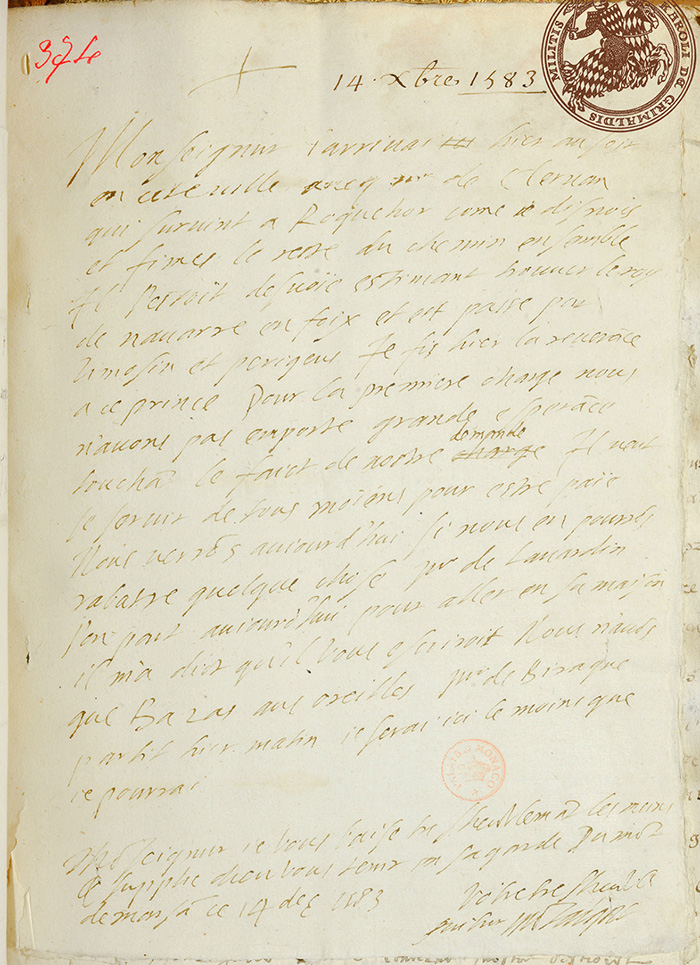 374
14 . Xbre 1583
MILITIS KAROLI DE GRIMALDIS
Monseigneur j'arrivai hier au soir
en cete ville avecq mr de Clervan
qui survint a Roquehor come ie disnois
et fimes le reste du chemin ensemble
Il s'estoit desvoïé estimant trouver le roy
de navarre en foix et est passé par
Limosin et perigeus Je fis hier la reverāce
a ce prince Pour la premiere charge nous
n'avons pas emporté grande esperāce
touchāt le faict de nostre demande Il veut
se servir de tous moiens pour estre païé
Nous verrōs aujourd'hui si nous en pourrōs
rabatre quelque chose Mr de Lavardin
s'en part aujourd'hui pour aller en sa maison
il m'a dict qu'il vous escriroit Nous n'avōs
que Bazas aus oreilles Mr de Birague
partit hier matin ie serai ici le moins que
ie pourrai
PALAIS DE MONACO
Mōseigneur ie vous baise tres humblemāt les mains
& supplie dieu vous tenir en sa garde Du mōt
de marsā ce 14 dec 1583
Vostre tres humble
serviteur Montaigne